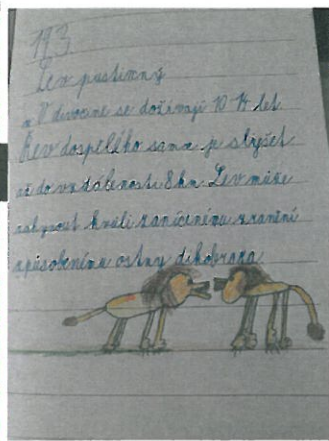 19 3.
Lev pustinný
V divočině se dožívají 10 14 let.
Řev dospělého samce je slyšet
až do vzdálenosti 8 km. Lev může
zahynout kvůli zanícenému zranění
způsobenému ostny dikobraza.